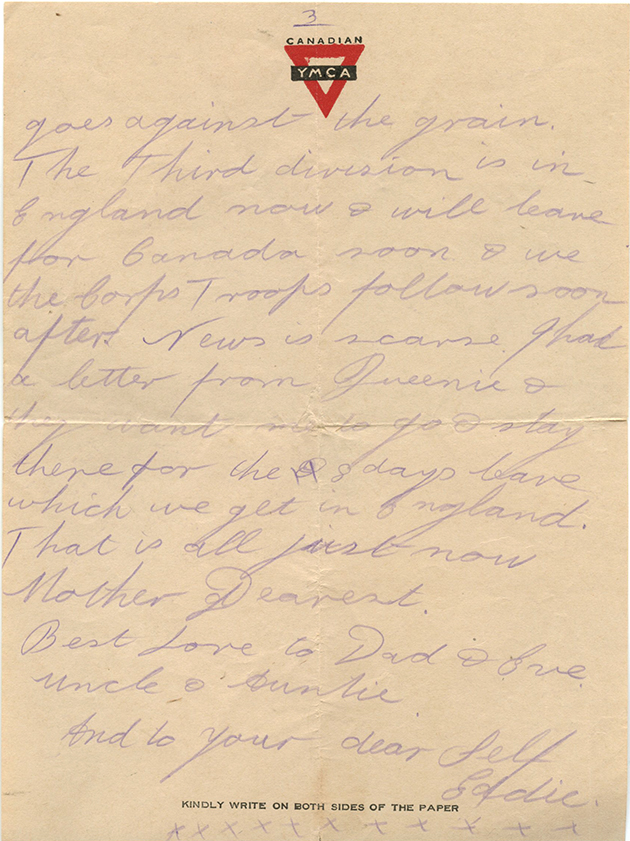 3
CANADIAN
YMCA
goes against the grain.
The Third division is in
England now & will leave
for Canada soon & we
the Corps Troops follow soon
after. News is scarse I had
a letter from Queenie &
they want me to go & stay
there for the 8 days leave
which we get in England.
That is all just now
Mother Dearest.
Best Love to Dad & Eve.
Uncle & Auntie
And to your dear Self
Eddie.
KINDLY WRITE ON BOTH SIDES OF THE PAPER
x x x x x x x x x x x x